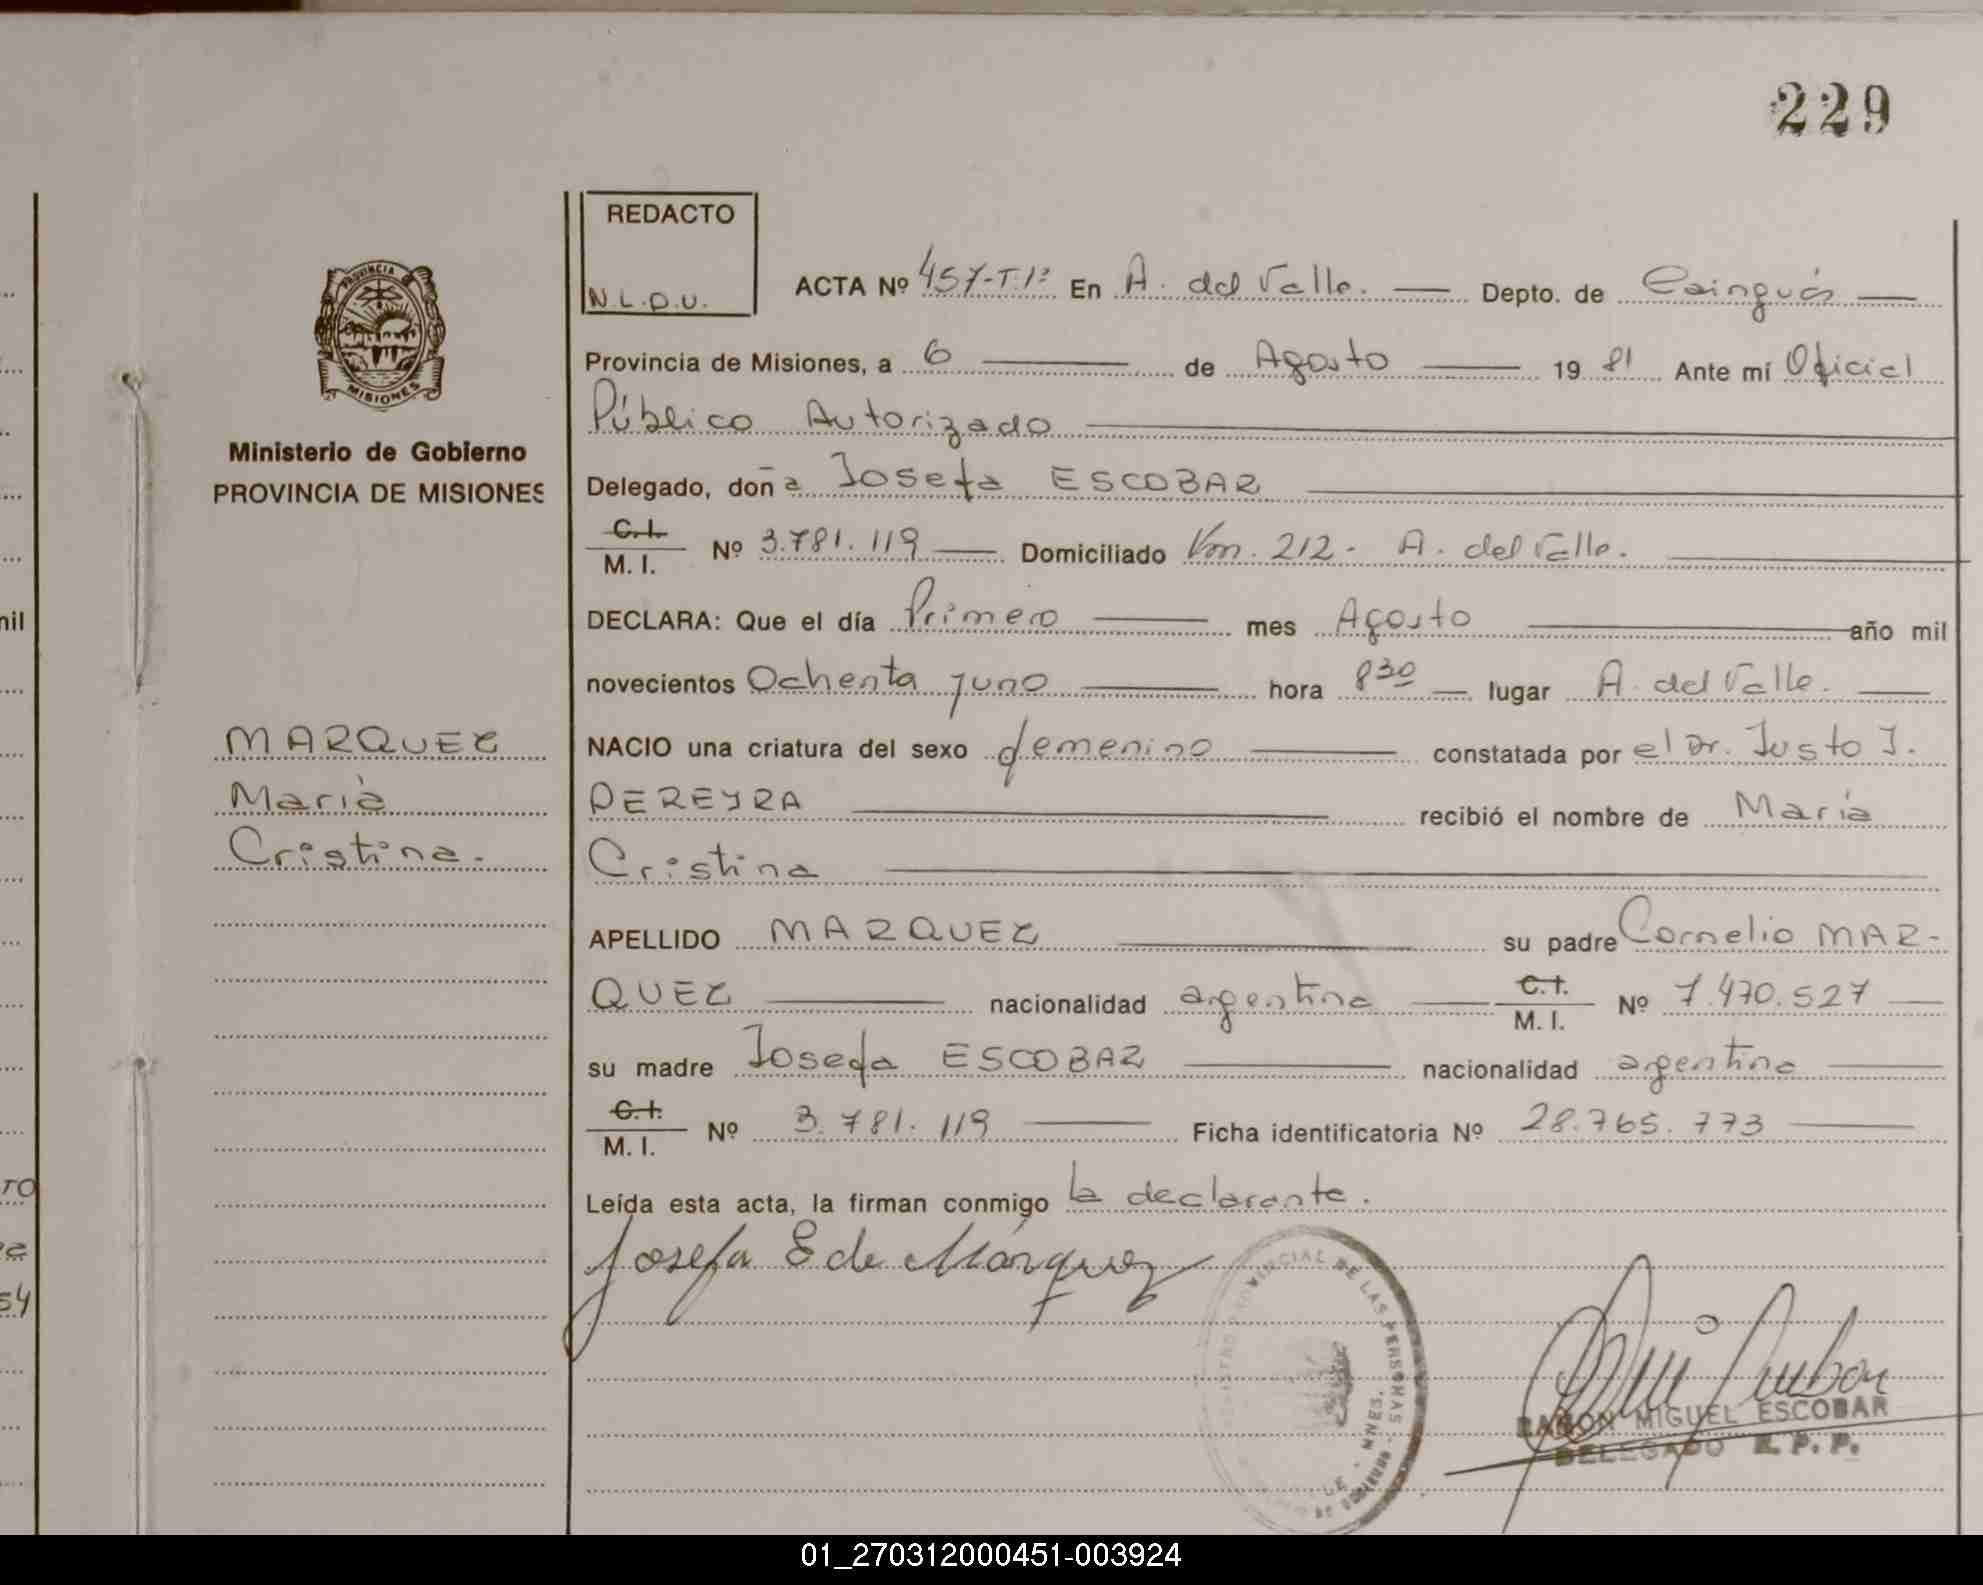 229
REDACTO
N.L.D.U.
ACTA Nº 457-T.1º En A. del Valle. Depto. de Cainguás
Provincia de Misiones, a 6 de Agosto 19 81 Ante mí Oficial
Público Autorizado
Delegado, doña Josefa ESCOBAR
C.I.
M.I. Nº 3.781.119 Domiciliado Km. 212- A. del Valle.
DECLARA: Que el día Primero mes Agosto año mil
novecientos Ochenta y uno hora 8 30 lugar A. del Valle.
NACIO una criatura del sexo femenino constatada por el Dr. Justo J.
PEREYRA recibió el nombre de María
Cristina
APELLIDO MARQUEZ su padre Cornelio MAR-
QUEZ nacionalidad argentina C.I.
M.I. Nº 7.470.527
su madre Josefa ESCOBAR nacionalidad argentina
C.I.
M.I. Nº 3.781.119 Ficha identificatoria Nº 28.765.773
Leída esta acta, la firman conmigo la declarante.
Josefa E de Márquez
PROVINCIAL DE LAS PERSONAS
MNES.
RAMON MIGUEL ESCOBAR
DELEGADO R. P. P.
PROVINCIA
MISIONES
Ministerio de Gobierno
PROVINCIA DE MISIONES
MARQUEZ
María
Cristina.
nil
TO
54
01_270312000451-003924